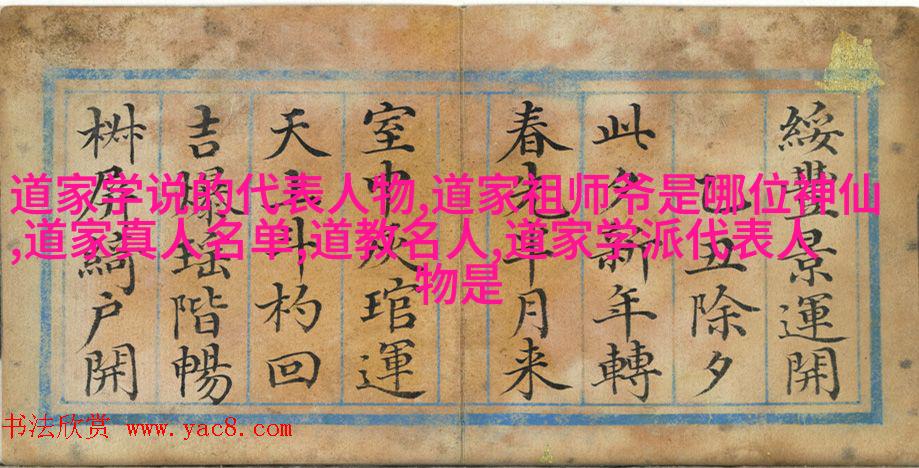 綏豐景運開
乙丑除夕
此夕新年轉
春先半月来
室中琯運
天上斗杓回
吉爆瑶階暢
椒屏綺户開
道家学说的代表人物,道家祖师爷是哪位神仙
,道家真人名单,道教名人,道家学派代表人
物是
书法欣赏 www.yac8.com